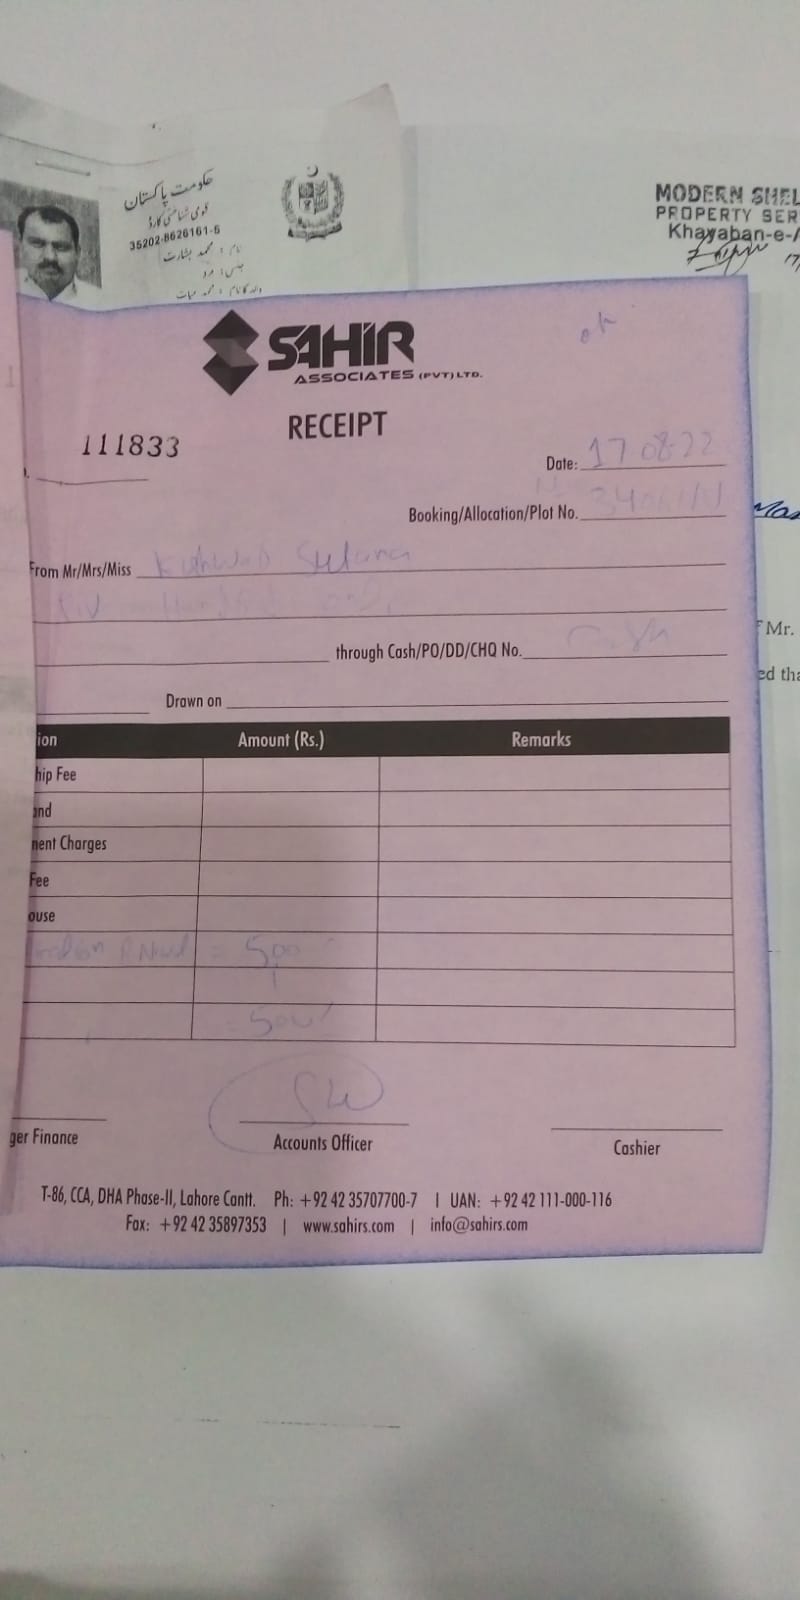 حکومت پاکستان
قومی شناختی کارڈ
35202-8626161-5
نام : محمد بشارت
جنس: مرد
MODERN SHEL
PROPERTY SER
Khayaban-e-
SAHIR
ASSOCIATES (PVT) LTD.
ok
RECEIPT
111833
Date: 17-08-22
Booking/Allocation/Plot No.
From Mr/Mrs/Miss
through Cash/PO/DD/CHQ No. Cash
Drawn on
ion Amount (Rs.) Remarks
hip Fee
and
ment Charges
Fee
ouse
= 500/
500/
ger Finance Accounts Officer Cashier
T-86, CCA, DHA Phase-II, Lahore Cantt. Ph: +92 42 35707700-7 | UAN: +92 42 111-000-116
Fax: +92 42 35897353 | www.sahirs.com | info@sahirs.com
Mr.
ed tha